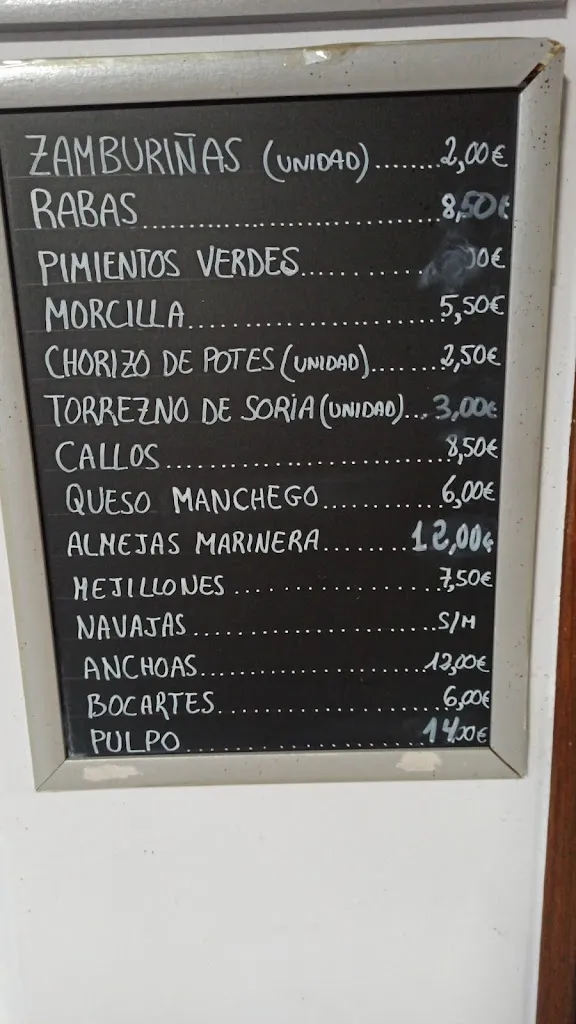 ZAMBURIÑAS (UNIDAD).......2,00€
RABAS..........................8,50€
PIMIENTOS VERDES...........
MORCILLA......................5,50€
CHORIZO DE POTES (UNIDAD).......2,50€
TORREZNO DE SORIA (UNIDAD)...3,00€
CALLOS.........................8,50€
QUESO MANCHEGO............6,00€
ALMEJAS MARINERA.......12,00€
MEJILLONES...................7,50€
NAVAJAS.......................S/M
ANCHOAS.....................12,00€
BOCARTES.....................6,00€
PULPO.........................14,00€